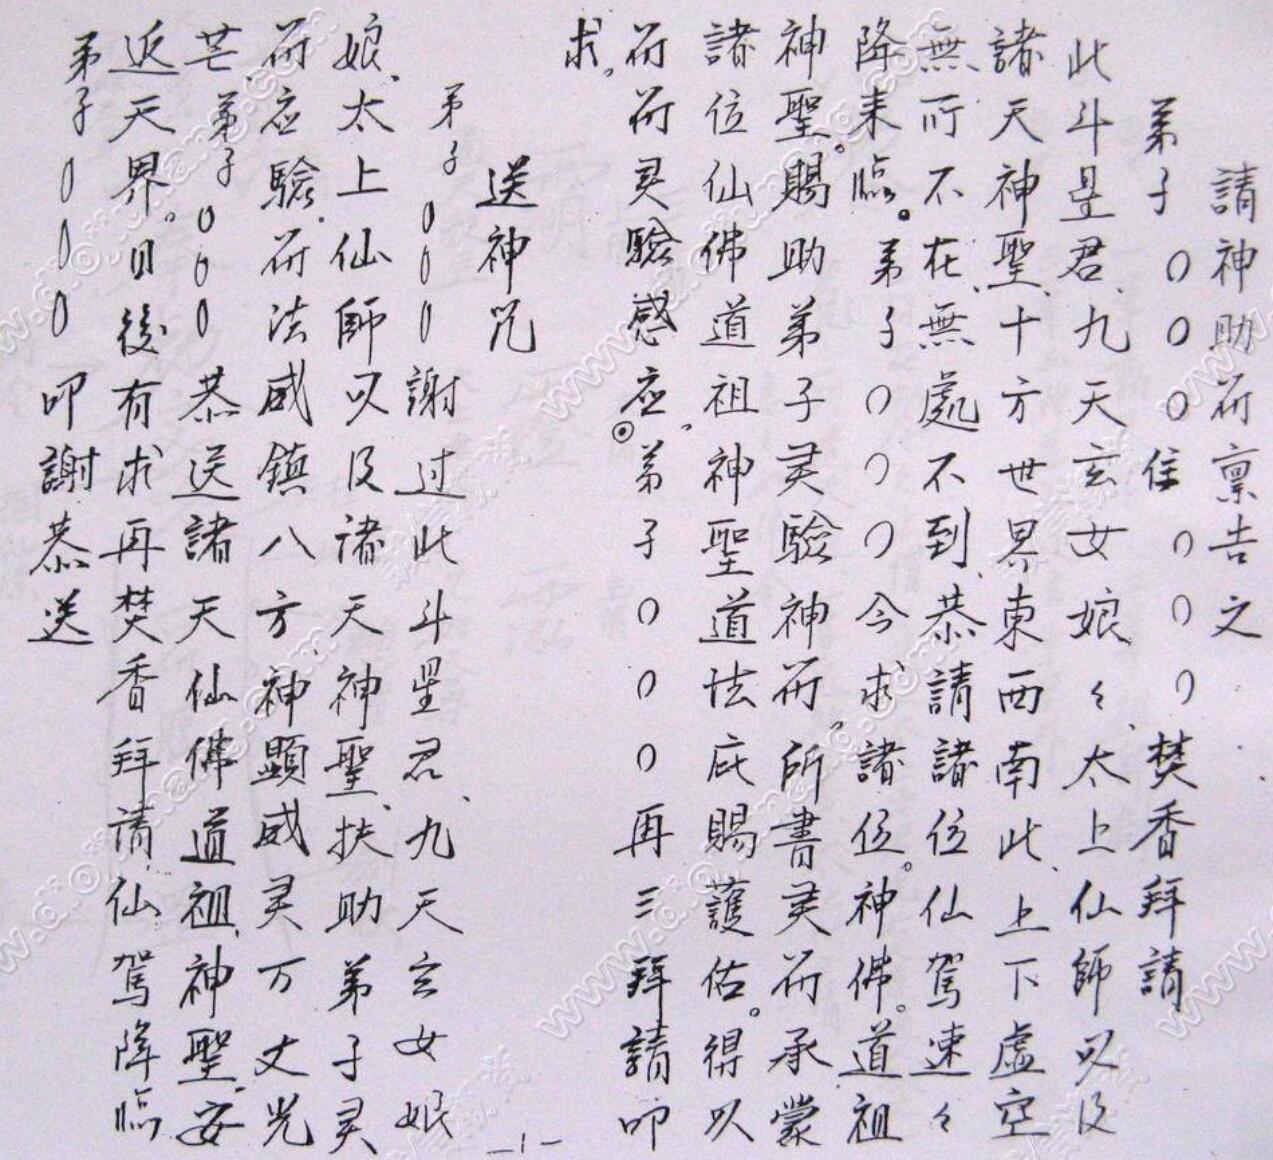 請神助符禀告之
弟子000住000焚香拜請
此斗星君、九天玄女娘々、太上仙師以及
諸天神聖、十方世界東西南此、上下虛空
無、所不在、無處不到、恭請諸位仙駕速々
降来臨。弟子000今求諸位。神佛。道祖
神聖。賜助弟子灵驗神符、所書灵符承蒙
諸位仙佛道祖神聖道法庇賜護佑。得以
符符灵驗感应。弟子000再三拜請叩
求。
送神咒
弟子000謝过此斗星君、九天玄女娘
娘、太上仙師以及诸天神聖、扶助弟子灵
符应驗。符法威鎮八方、神顯威灵万丈光
芒、弟子000恭送諸天仙佛道祖、神聖、安
返天界。日後有求再焚香拜請、仙駕降臨
弟子000叩謝恭送
-1-